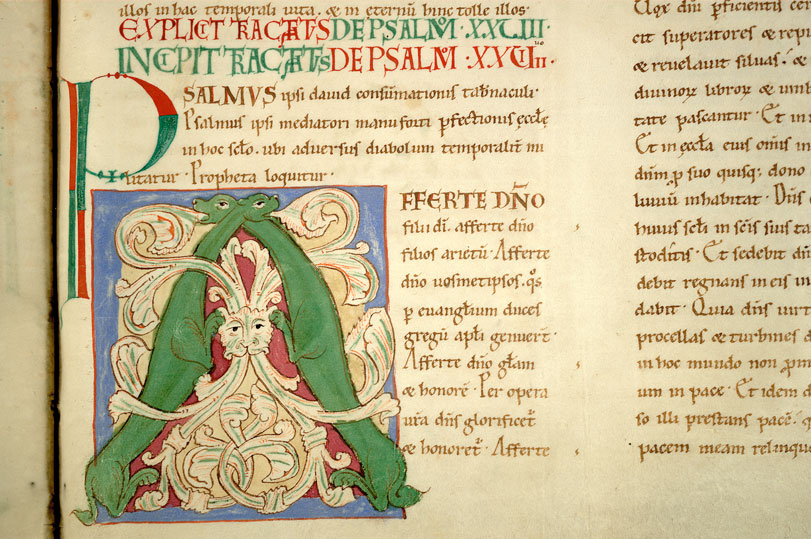 illos in hac temporali uita. & in eternũ hinc tolle illos.
EXPLICIT TRACTATUS DE PSALMO · XXVIII ·
INCIPIT TRACTATUS DE PSALMO · XXVIII ·
PSALMUS ipsi dauid consũmationis tab̃naculi ·
Psalmus ipsi mediatori manu forti ꝑfectionis ęccłę
in hoc scło. ubi aduersus diabolum temporalit̃ mi
litatur · Propheta loquitur ·
AFFERTE DÑO
filii dĩ. afferte dño
filios arietũ · Afferte
dño uosmetipsos. qͦs
ꝑ euangłium duces
gregũ apłi genuer̃t ·
Afferte dño głam
& honorẽ · Per opera
ur̃a dñs glorificet̃
& honoret̃ · Afferte
dñi ꝑficientis
cit superatores & repu
& reuelauit siluas · &
diuinoꝝ libroꝝ & umb
tate pascantur · Et in
Et in ęccła eius om̃s in
dñm ꝑ suo quisq; dono
luuiũ inhabitat · Dñs
huius scłi in scĩs suis ta
stoditis · Et sedebit dñ
debit regnans in eis in
dabit · Quia dñs uirt
procellas & turbines d
in hoc mundo non ꝓm
um in pace · Et idem
so illi prestans pacẽ. q
pacem meam relinquo